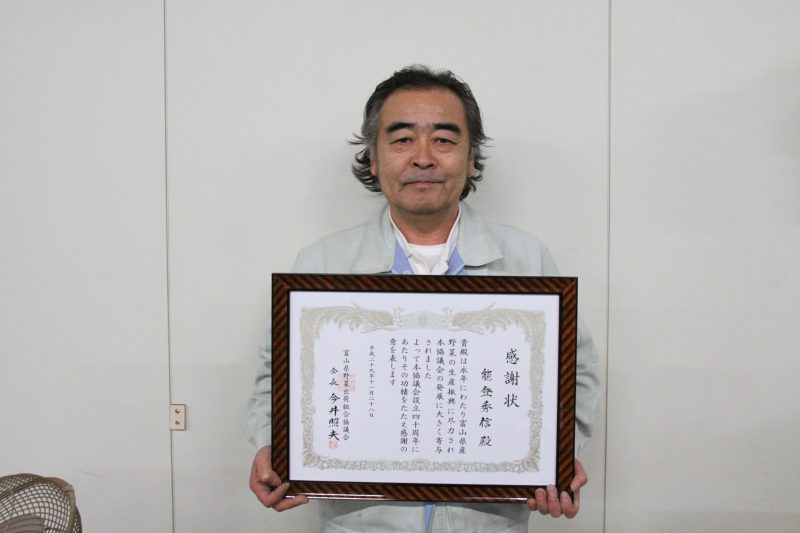 感謝状
能登秀信殿
貴殿は永年にわたり富山県産
野菜の生産振興に尽力され
本協議会の発展に大きく寄与
されました
よって本協議会設立四十周年に
あたりその功績をたたえ感謝の
意を表します
平成二十九年十一月二十八日
富山県野菜出荷組合協議会
会長 今井照夫